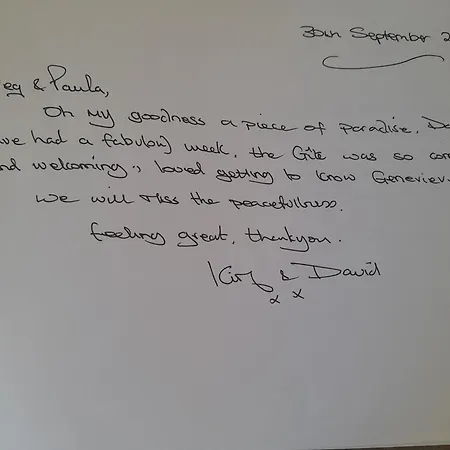 30th September 2
eg & Paula,
Oh my goodness a piece of paradise. Da
we had a fabulous week. the Gîte was so com
nd welcoming, loved getting to know Geneviev
we will miss the peacefullness.
feeling great, thankyou.
& David
x x